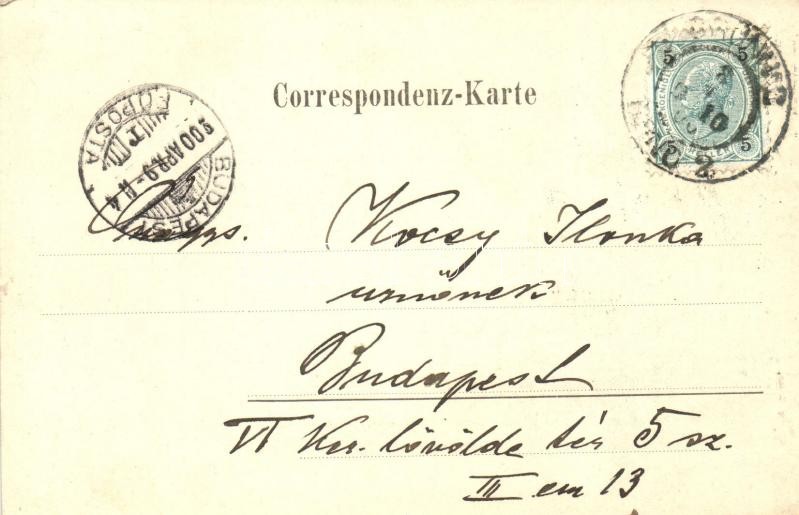 Correspondenz-Karte
BUDAPEST
FŐPOSTA
900 APR.9-
5 5
5 5
Kocsy Ilonka
urnőnek
Budapest
VI Ker. lövölde tér 5 sz.
III em 13